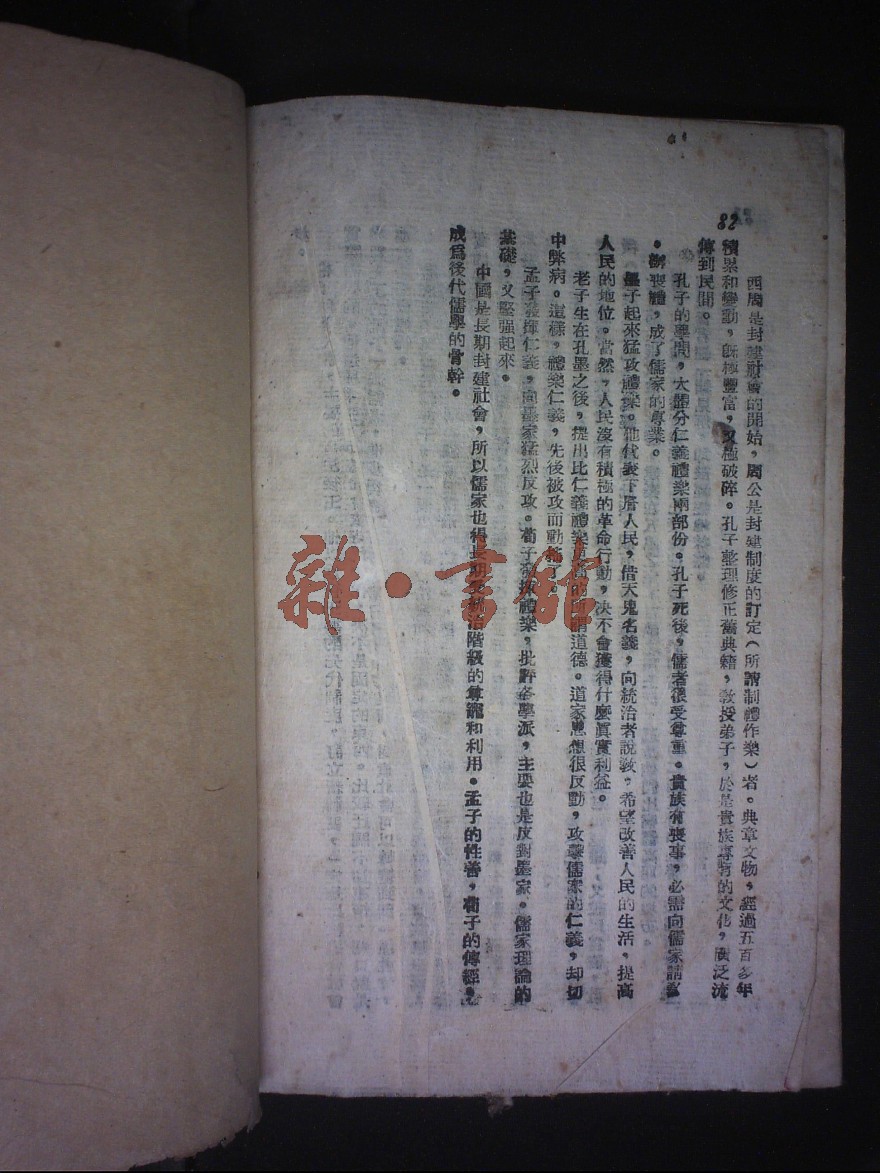 82
西周是封建社會的開始，周公是封建制度的訂定（所謂制禮作樂）者。典章文物，經過五百多年
積累和變動，既極豐富，又極破碎。孔子整理修正舊典籍，敎授弟子，於是貴族專有的文化，廣泛流
傳到民間。
孔子的學問，大體分仁義禮樂兩部份。孔子死後，儒者很受尊重。貴族有喪事，必需向儒家請敎
。辦喪禮，成了儒家的專業。
墨子起來猛攻禮樂。他代表下層人民，借天鬼名義，向統治者說敎，希望改善人民的生活，提高
人民的地位。當然，人民沒有積極的革命行動，决不會獲得什麼眞實利益。
老子生在孔墨之後，提出比仁義禮樂更高的所謂道德。道家思想很反動，攻擊儒家的仁義，却切
中弊病。這樣，禮樂仁義，先後被攻而動搖了。
孟子發揮仁義，向墨家猛烈反攻。荀子發揮禮樂，批評各學派，主要也是反對墨家。儒家理論的
基礎，又堅强起來。
中國是長期封建社會，所以儒家也得長期受統治階級的尊寵和利用。孟子的性善，荀子的傳經，
成爲後代儒學的骨幹。
雜·書館